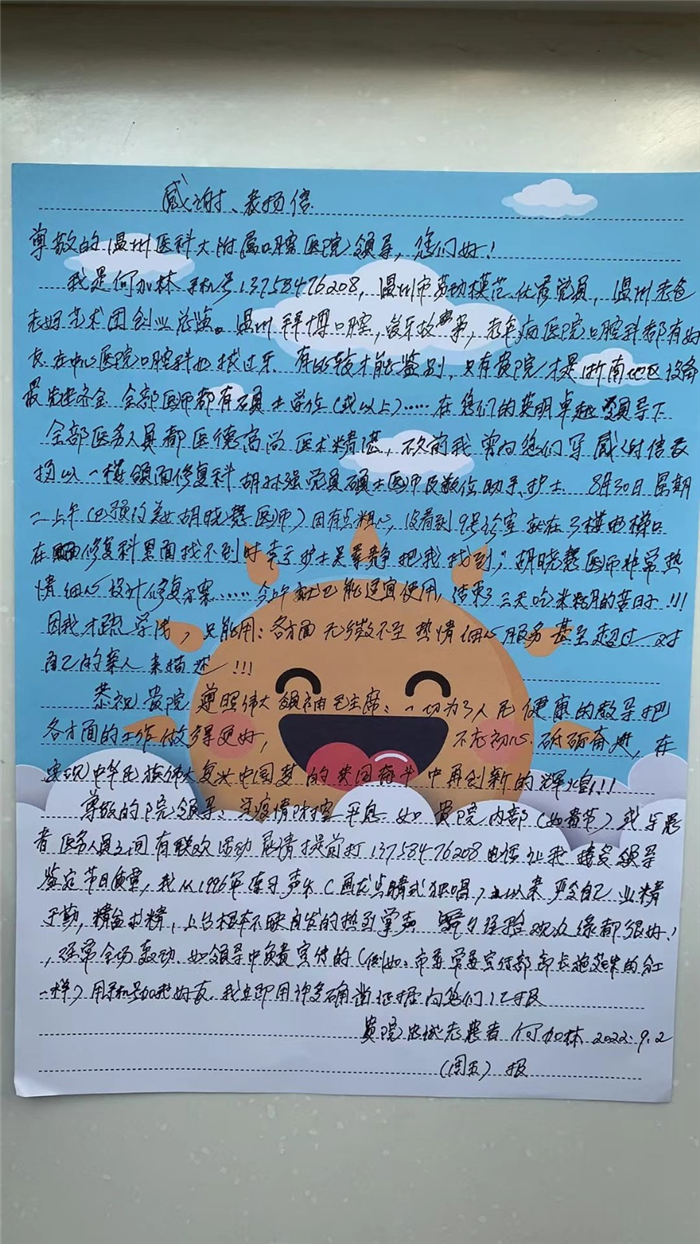 感谢、表扬信
尊敬的温州医科大附属口腔医院领导，您们好！
我是何加林 手机号13758476208，温州市劳动模范、优秀党员，温州老爸
老妈艺术团创业总监。温州拜博口腔，音乐效果，老年病医院口腔科都有好
友 在中心医院口腔科也找过牙. 有比较才能鉴别，只有贵院才是浙南地区设备
最先进齐全 全部医师都有硕士学位（或以上）……在您们的英明卓越领导下
全部医务人员都医德高尚 医术精湛，不久前我曾向您们写感谢信表
扬以一楼颌面修复科 胡 强党员硕士医师及数位助手护士 8月30日星期
二上午（ 胡晓慧医师）因有点粗心，没看到9号诊室就在3楼电梯口
在 修复科里面找不到时 幸亏护士吴 静把我找到，胡晓慧医师非常热
情细心设计修复方案……今上午 已能适宜使用，结束了三天吃米糊的苦日子!!!
因我才疏学浅，只能用：各方面无微不至 热情细心服务甚至超过对
自己的亲人来描述!!!
恭祝贵院 遵照伟大领袖毛主席：一切为了人民健康的教导把
各方面的工作做得更好， 不忘初心. 砥砺奋进，在
实现中华民族伟大复兴中国梦的共同奋斗中再创新的辉煌!!!
尊敬的院领导：等疫情防控平息 如贵院内部（如春节）或与患
者 医务人员之间有联欢活动 恳请提前打13758476208电话让我接受领导
鉴定节目质量，我从1996年练习声乐（画龙点睛式独唱）以来 严令自己 业精
于勤，精益求精，上台根本不缺自发的热烈掌声 观众缘都很好！
，经常全场轰动. 如领导中负责宣传的（例如：市委常委宣传部部长施艾珠的分工
一样）用手机号加我好友 我立即用许多确凿证据向您们汇报
贵院忠诚老患者 何加林 2022.9.2
（周五）报